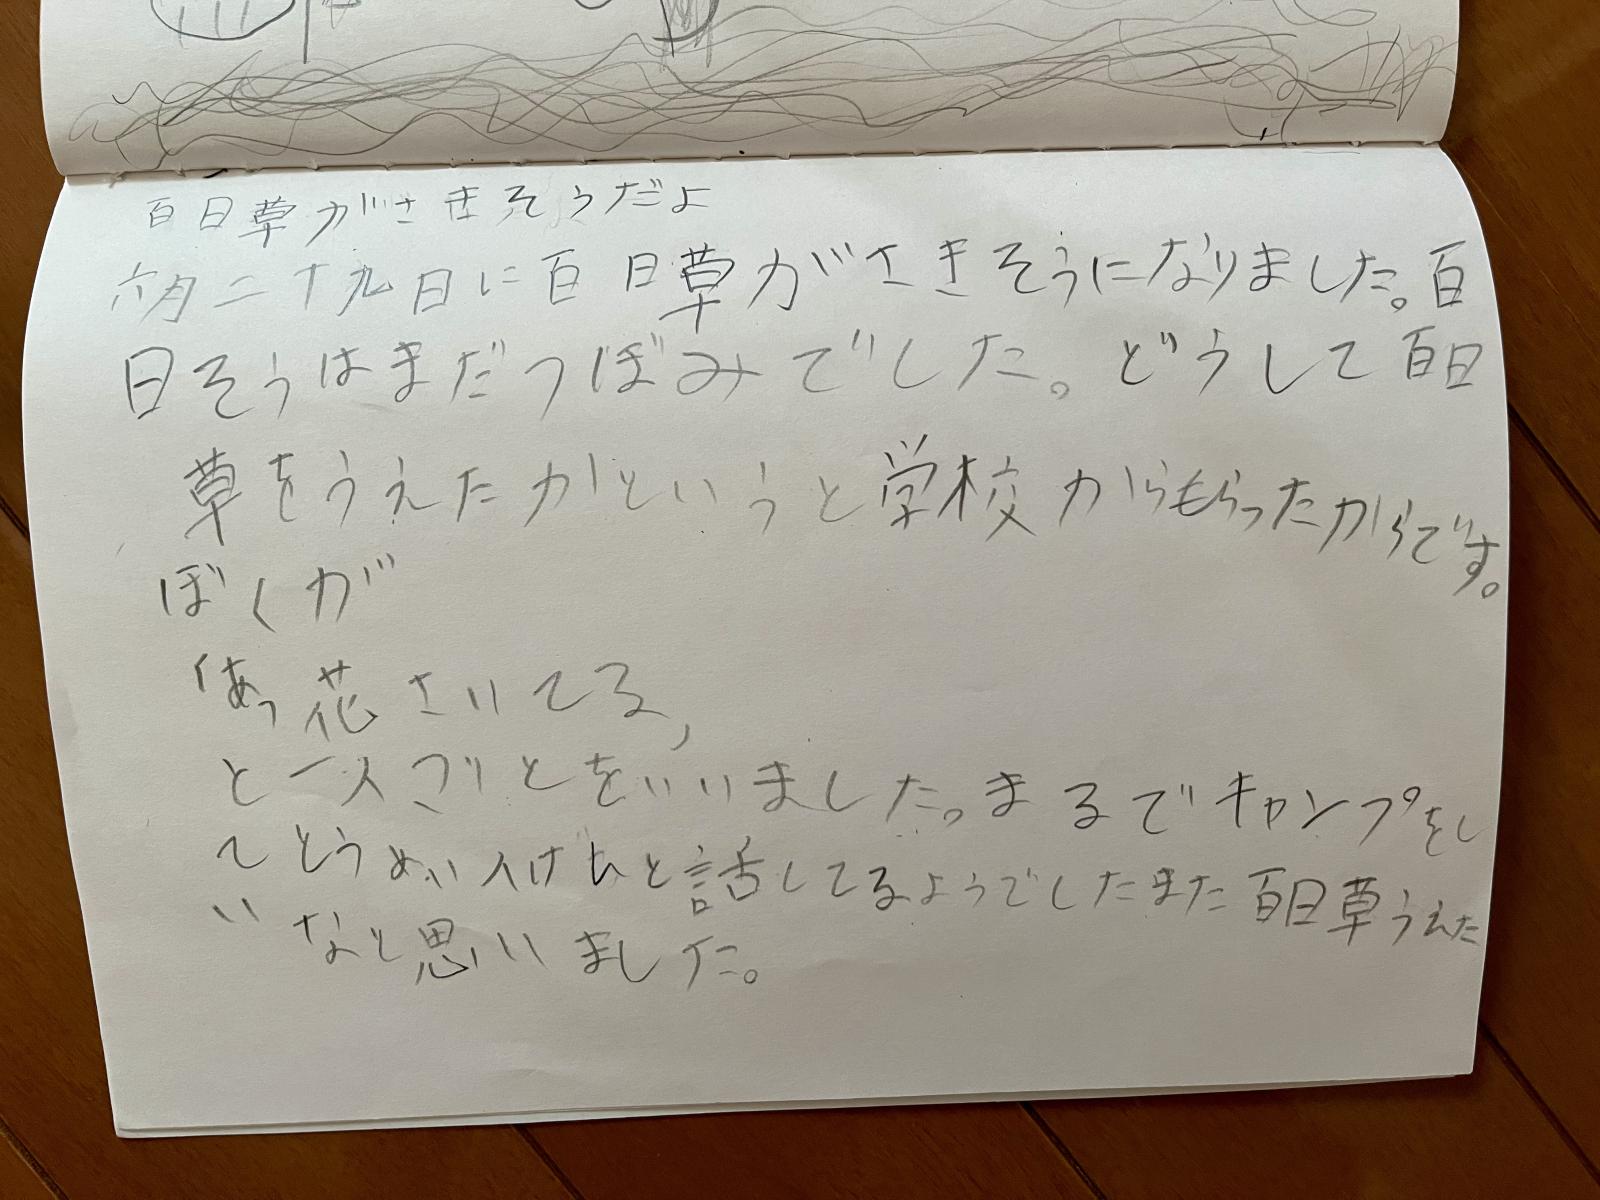 百日草がさきそうだよ
六月二十九日に百日草がさきそうになりました。百
日そうはまだつぼみでした。どうして百日
草をうえたかというと学校からもらったからです。
ぼくが
「あっ花さいてる」
と一人ごとをいいました。まるでキャンプをし
てとうめい人げんと話してるようでしたまた百日草うえた
いなと思いました。